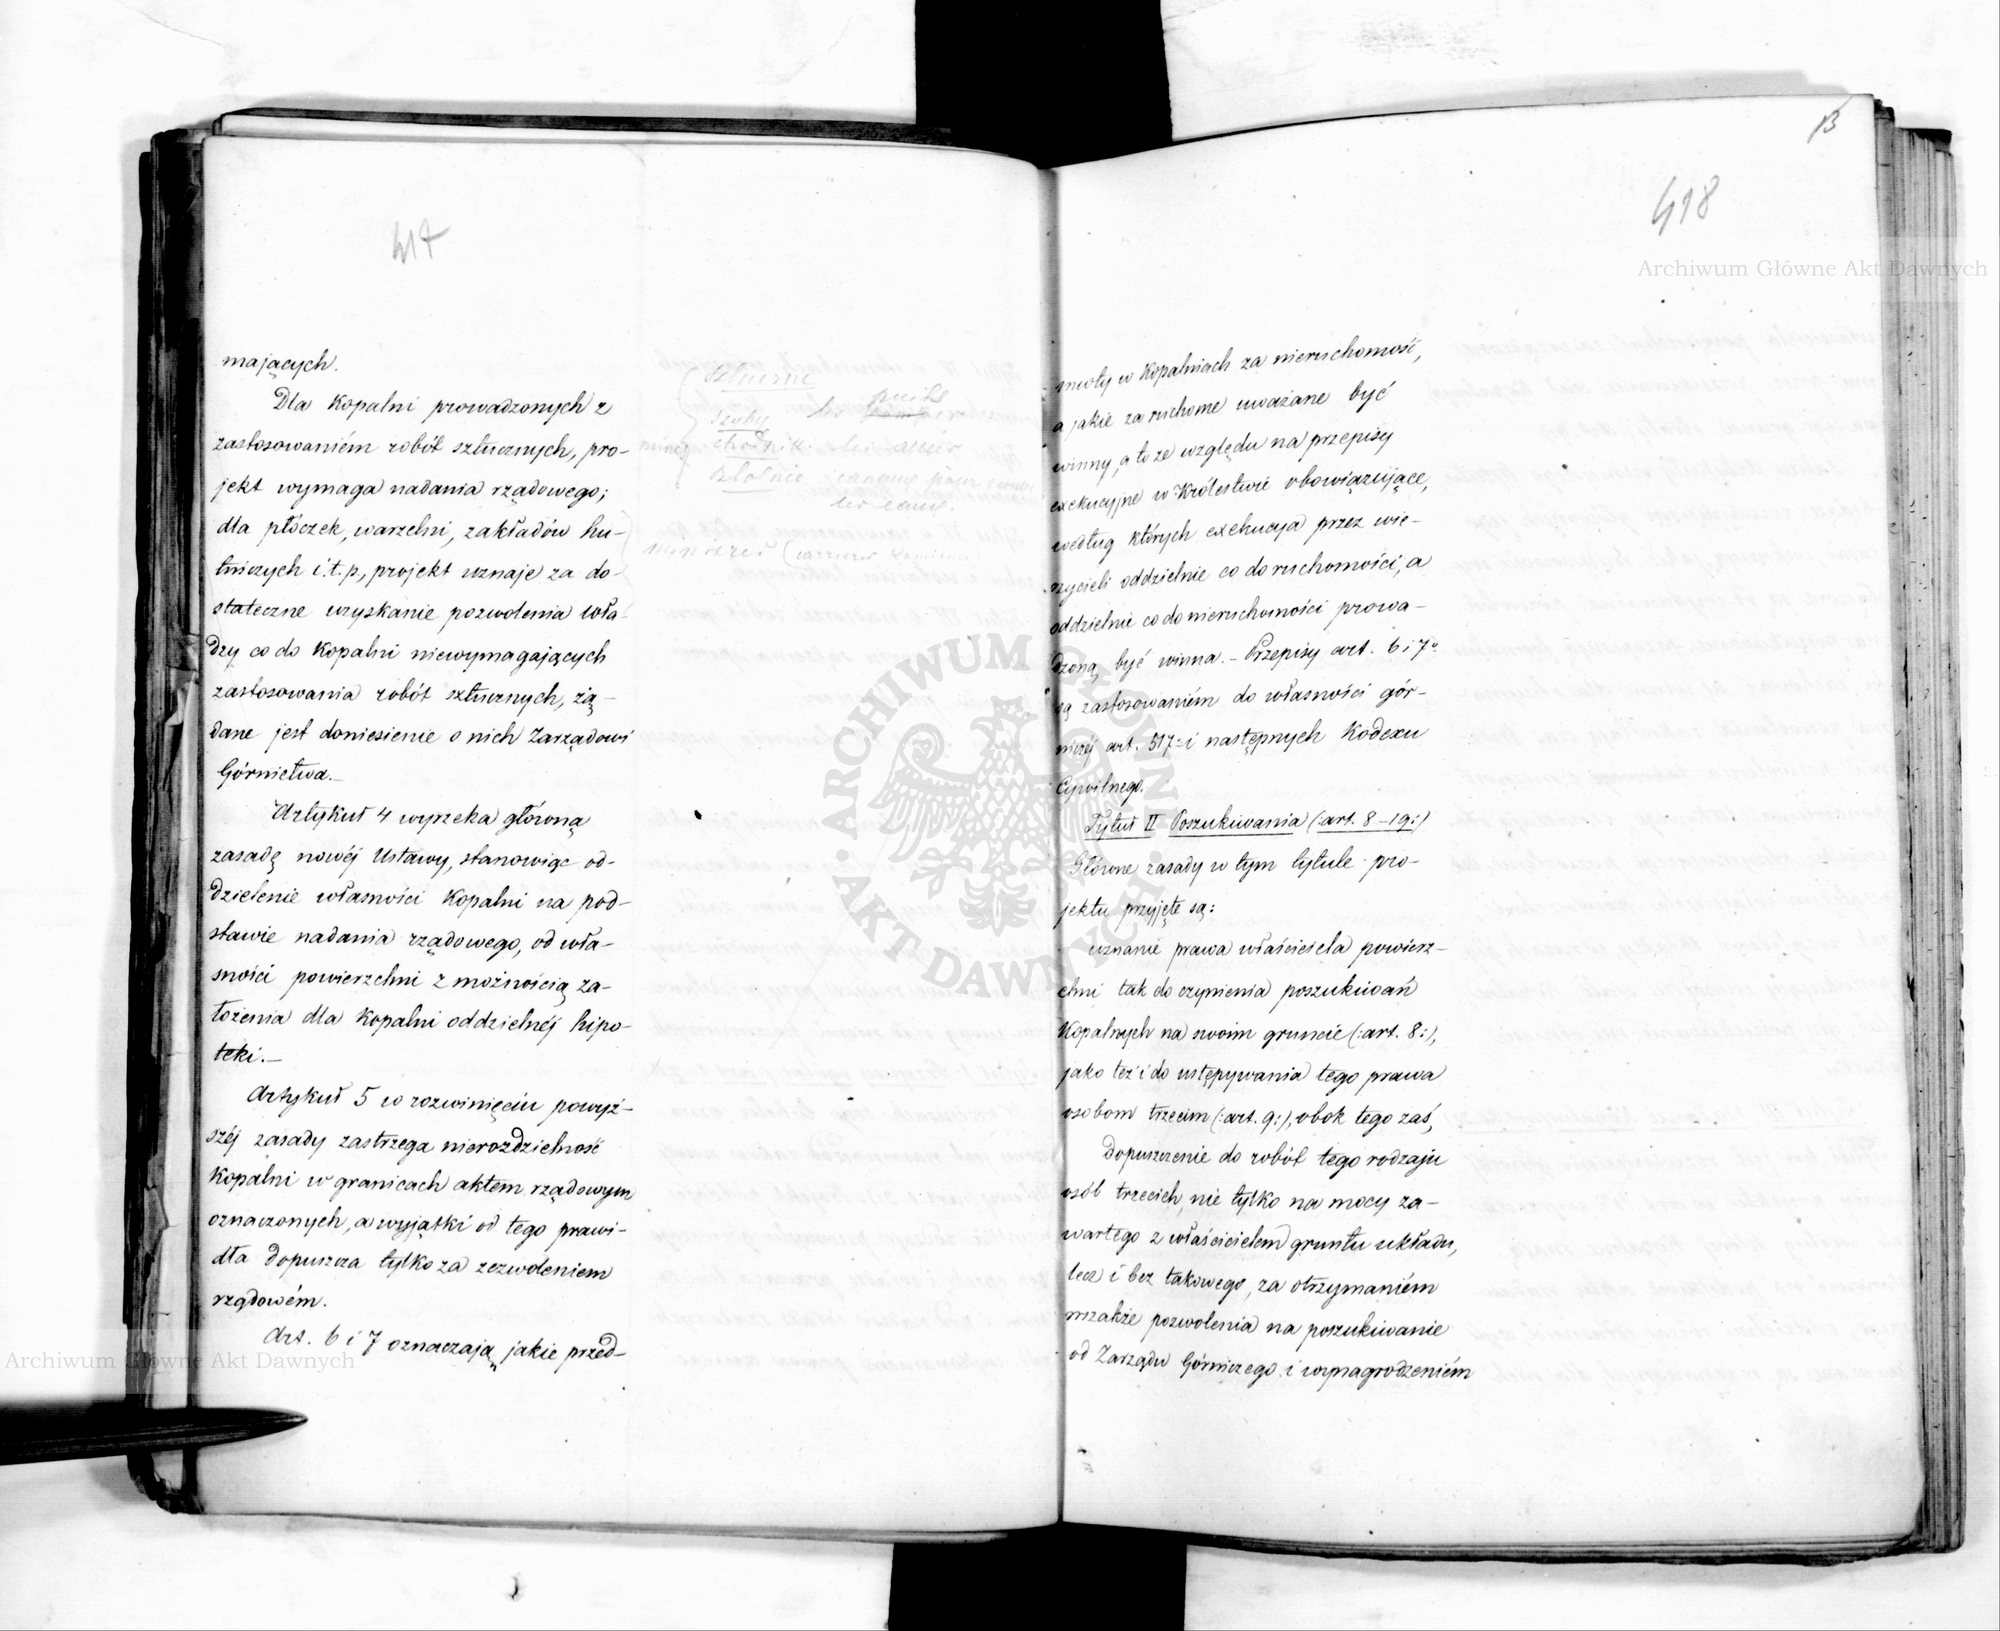 417
mających.
Dla kopalni prowadzonych z
zastosowaniém robót sztucznych, pro-
jekt wymaga nadania rządowego;
dla płóczek, warzelni, zakładów hu-
tniczych i.t.p., projekt uznaje za do-
stateczne uzyskanie pozwolenia wła-
dzy co do kopalni niewymagających
zastosowania robót sztucznych, żą-
dane jest doniesienie o nich Zarządowi
Górnictwa.-
Artykuł 4 wyrzeka główną
zasadę nowéj Ustawy, stanowiąc od-
dzielenie własności kopalni na pod-
stawie nadania rządowego, od wła-
sności powierzchni z możnością za-
łożenia dla kopalni oddzielnéj hipo-
teki.-
Artykuł 5 w rozwinięciu powyż-
széj zasady zastrzega nierozdzielność
kopalni w granicach aktem rządowym
oznaczonych, a wyjątki od tego prawi-
dła dopuszcza tylko za zezwoleniem
rządowém.
Art. 6 i 7 oznaczają jakie przed-
Sztuczne
puits
szyby les
chodnik
Sztolnie
les eaux.
minières (
13
418
mioty w kopalniach za nieruchomość,
a jakie za ruchome uważane być
winny, a to ze względu na przepisy
exekucyjne w Królestwie obowiązujące,
według których exekucya przez wie-
rzycieli oddzielnie co do ruchomości, a
oddzielnie co do nieruchomości prowa-
dzoną być winna.- Przepisy art. 6 i 7
są zastosowaniém do własności gór-
niczéj art. 517 i następnych Kodexu
Cywilnego.
Tytuł II Poszukiwania (:art. 8-19:)
Główne zasady w tym tytule pro-
jektu przyjęte są:
uznanie prawa właściciela powierz-
chni tak do czynienia poszukiwań
kopalnych na swoim gruncie (:art. 8:),
jako też i do ustępywania tego prawa
osobom trzecim (:art. 9:), obok tego zaś,
dopuszczenie do robót tego rodzaju
osób trzecich, nie tylko na mocy za-
wartego z właścicielem gruntu układu,
lecz i bez takowego, za otrzymaniém
wszakże pozwolenia na poszukiwanie
od Zarządu Górniczego i wynagrodzeniém
Archiwum Główne Akt Dawnych
Archiwum Główne Akt Dawnych
ARCHIWUM GŁÓWNE AKT DAWNYCH